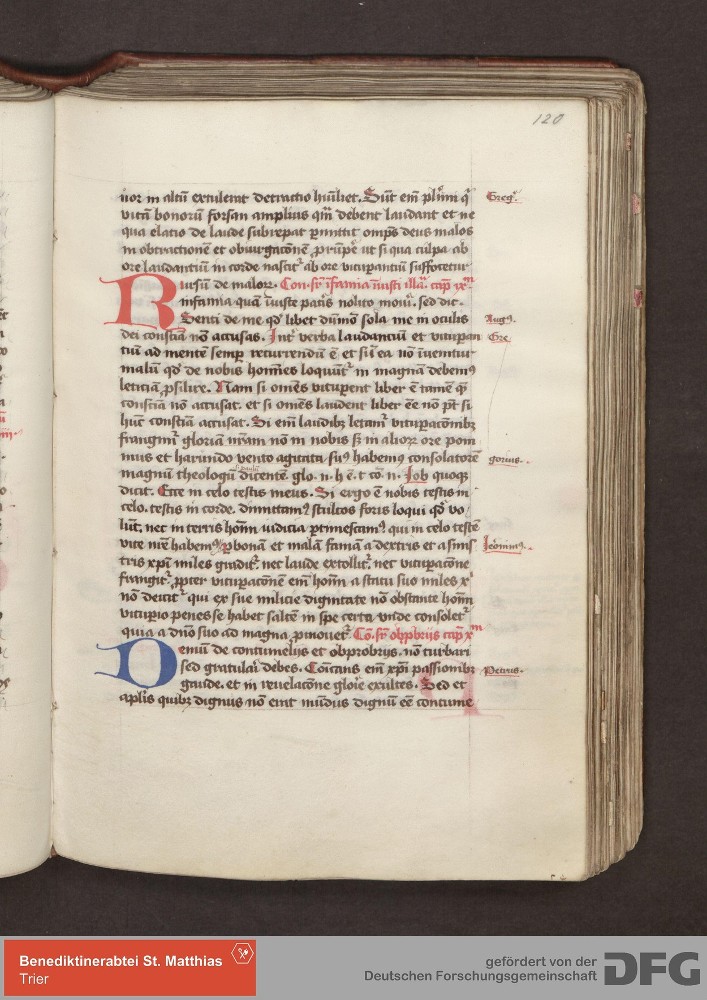 120
uor in altū extulerat detractio hūiliet. Sūt em̄ pl̄imi q̄
Greg᷒.
vitā bonorū forsan amplius qm̄ debent laudant et ne
qua elatio de laude subrepat p̱mittit omp̄s deus malos
in obtractionē et obiurgacōnē ꝓrūpe᷒ ut si qua culpa ab
ore laudantiū in corde nascit᷒ ab ore vitup̱antiū suffocetur
Rursū de maloꝝ. Con. sr̄ īfamia īiusti illa᷒. cap̄ ix᷒ᵐ
infamia quā īiuste pat̄is nolito mou᷒i. sed dic.
Senti de me qd᷒ libet dūmō sola me in oculis
Aug᷒.
dei consciā nō accusas. Int᷒ verba laudantiū et vitup̱an
Gre
tiū ad mentē semp̱ recurrendū ē et si ī ea nō īuenitur
malū qd᷒ de nobis homīes loquūt᷒ in magnā debemꝰ
leticiā ꝓsilire. Nam si om̄es vitup̱ent liber ē tamē q̄
consciā nō accusat. et si om̄es laudent liber eē nō p̄t si
hūc consciā accusat. Si em̄ laudibꝫ letam᷒ vitup̱acōnibꝫ
frangim᷒ gloriā nr̄am nō in nobis sꝫ in alioꝝ ore poni
mus et harundo vento agitata sūꝰ habemꝰ consolatorē
gorius.
magnū theologū dicentē. glo. n. h ē. t cō. n. Iob quoqꝫ
dicit. Ecce in celo testis meus. Si ergo ē nobis testis in
celo. testis in corde. dimittamꝰ stultos foris loqui qd᷒ vo
lūt. nec in terris hoīm iudicia p̱timescamꝰ. qui in celo testē
vite nr̄e habemꝰ p̱ bonā et malā famā a dextris et a sinis
Ieronimꝰ.
tris xp̄i miles gradit᷒. nec laude extollit᷒. nec vitup̱acōne
frangit᷒. ꝓpter vitup̱acōnē em̄ hoīm a statu suo miles x᷒
nō deicit᷒ qui ex sue milicie dignitate nō obstante hoīm
vitup̱io penes se habet saltē in spe certa vnde consolet᷒
quia a dn̄o suo ad magna ꝓmouet᷒. Cō. sr̄ obprob̄ijs cap̄ xᵐ
Demū de contumelijs et obprobrijs. nō turbari
sed gratulari debes. Cōicans em̄ xp̄i passionibꝫ
Petrus.
gaude. et in reuelacōne glor̄ie exultes. Sed et
apl̄is quibꝫ dignus nō erat mūdus dignū eē contume
Benediktinerabtei St. Matthias
Trier
gefördert von der
Deutschen Forschungsgemeinschaft
DFG